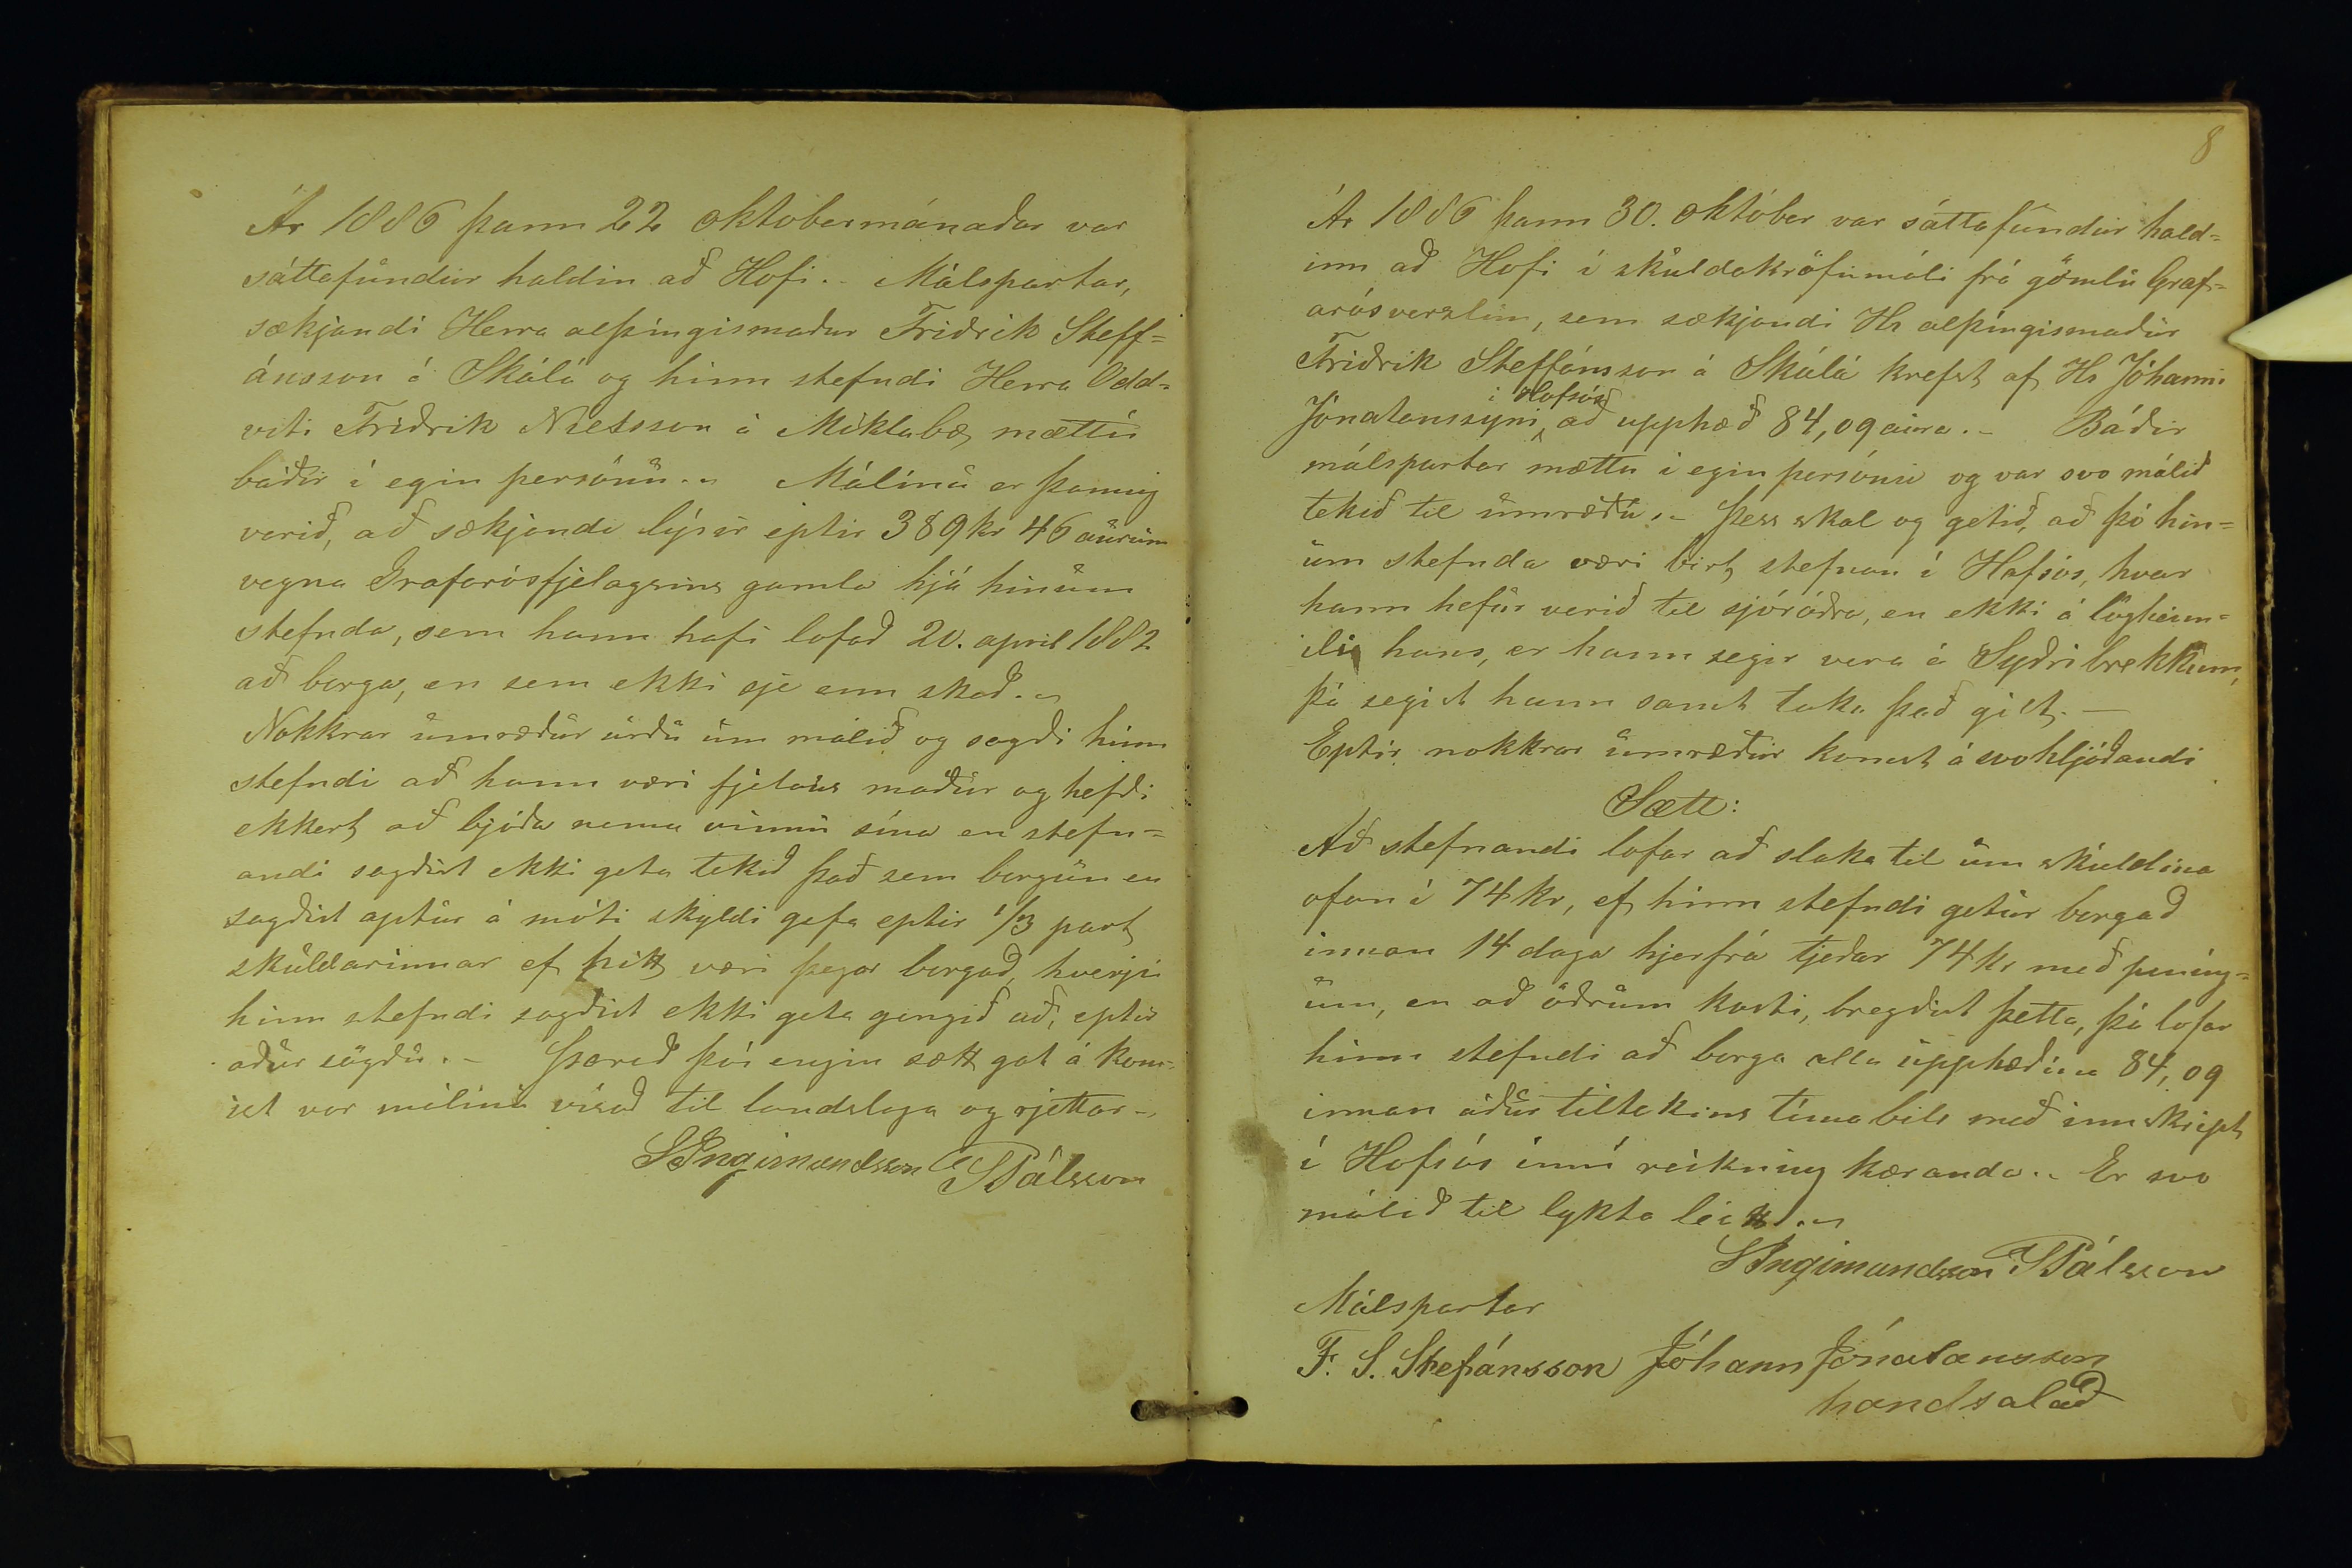 Ár 1886 þann 22 oktobermánaðar var
sáttafundur haldin að Hofi. - Málspartar,
sækjandi Herra alþingismaður Friðrik Steff=
ánsson á Skálá og hinn stefndi Herra Odd=
viti Friðrik Nielsson á Miklabæ mættu
báðir í egin persónu. - Málinu er þannig
varið, að sækjandi lýsir eptir 389 kr 46 aurum
vegna Grafarósfjelagsins gamla hjá hinum
stefnda, sem hann hafi lofað 20. april 1882
að borga, en sem ekki sje enn skeð. -
Nokkrar umræður urðu um málið og sagði hinn
stefndi að hann væri fjelaus maður og hefði
ekkert að bjóða nema vinnu sína en stefn=
andi sagðist ekki geta tekið það sem borgun en
sagðist aptur á móti skyldi gefa eptir 1/3 part
skuldarinnar ef hitt væri þegar borgað, hverju
hinn stefndi sagðist ekki geta gengið að, eptir
áður sögðu. - Þareð því engin sætt gat á kom=
ist var málinu vísað til landslaga og rjettar -
S Ingimundsson S Pálsson
8
Ár 1886 þann 30. október var sáttafundur hald=
inn að Hofi í skuldakröfumáli frá gömlu Graf=
arósverzlun, sem sækjandi Hr alþingismaður
Friðrik Steffánsson á Skálá krefst af Hr Jóhanni
Jónatanssyni í Hofsós að upphæð 84,09 aura. - Báðir
málspartar mættu í egin persónu og var svo málið
tekið til umræðu. - Þess skal og getið, að þó hin=
um stefnda væri birt stefnan í Hofsós, hvar
hann hefur verið til sjóróðra, en ekki á lögheim=
ili hans, er hann segir vera á Syðribrekkum,
þá segist hann samt taka það gilt. -
Eptir nokkrar umræður komst á svohljóðandi
Sætt:
Að stefnandi lofar að slaka til um skuldina
ofan í 74 kr, ef hinn stefndi getur borgað
innan 14 daga hjerfrá tjeðar 74 kr með pening=
um, en að öðrum kosti, bregðist þetta, þá lofar
hinn stefndi að borga alla upphæðina 84,09
innan áður tiltekins tímabils með innskript
í Hofsós inní reikning kæranda. - Er svo
málið til lykta leitt. -
S Ingimundsson S Pálsson
Málspartar
F. S. Stefánsson Jóhann Jónatansson
handsalað